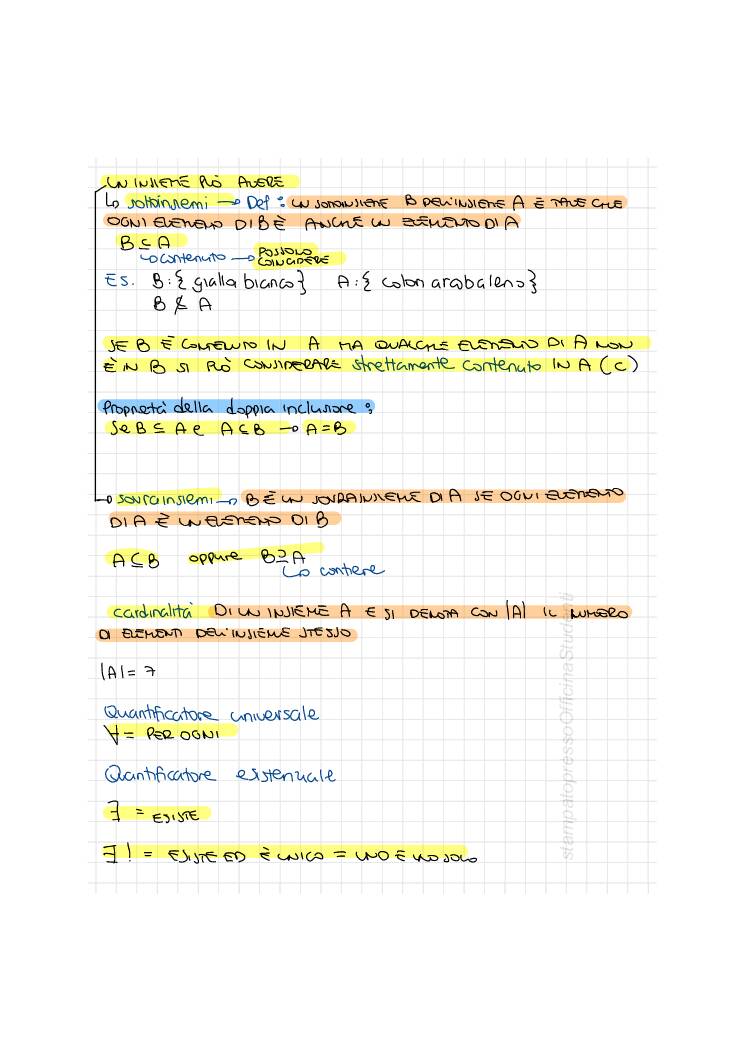 UN INSIEME PUÒ AVERE
↳ sottoinsiemi → Def : UN SOTTOINSIEME B DELL'INSIEME A È TALE CHE
OGNI ELEMENTO DI B È ANCHE UN ELEMENTO DI A
B ⊆ A
↳ contenuto → POSSONO
COINCIDERE
ES. B:{ giallo bianco} A:{ colori arcobaleno}
B ⊈ A
SE B È CONTENUTO IN A MA QUALCHE ELEMENTO DI A NON
È IN B SI PUÒ CONSIDERARE strettamente contenuto IN A (⊂)
Proprietà della doppia inclusione :
Se B ⊆ A e A ⊆ B → A = B
→ sovrainsiemi → B È UN SOVRAINSIEME DI A SE OGNI ELEMENTO
DI A È UN ELEMENTO DI B
A ⊆ B oppure B ⊇ A
↳ contiene
cardinalità DI UN INSIEME A E SI DENOTA CON |A| IL NUMERO
DI ELEMENTI DELL'INSIEME STESSO
|A| = 7
Quantificatore universale
∀ = PER OGNI
Quantificatore esistenziale
∃ = ESISTE
∃! = ESISTE ED È UNICO = UNO E UNO SOLO
stampatopressoOfficinaStudenti